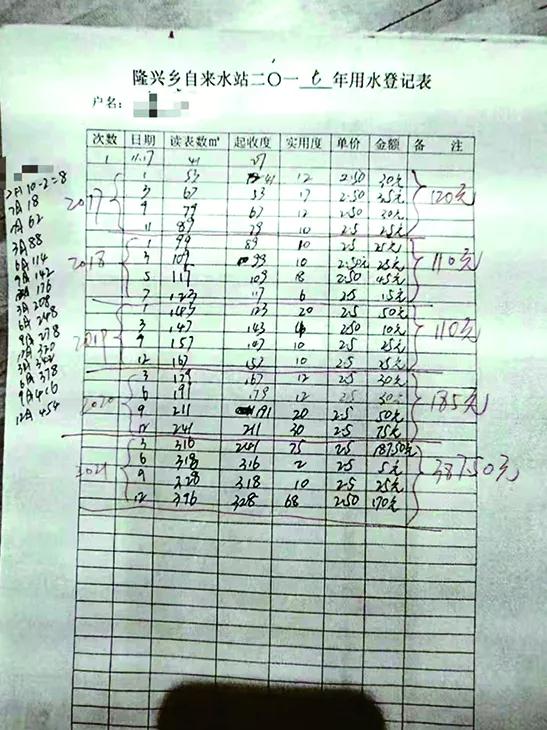 隆兴乡自来水站二〇一七年用水登记表
户名：
次数 日期 读表数m³ 起收度 实用度 单价 金额 备 注
1 11.17 41
2017 1 53 41 12 2.50 30元 120元
67 53 17 2.50
9 79 67 12 2.50 30元
11 89 79 10 2.5 25元
2018 1 99 89 10 2.5 25元 110元
3 109 99 10 2.50元 25元
5 117 109 18 2.50 45元
7 123 117 6 2.5 15元
2019 1 143 123 20 2.5 50元 110元
3 147 143 4 2.50 10元
9 157 107 10 2.5 25元
12 167 157 10 2.5 25元
2020 3 179 167 12 2.5 30元 185元
6 191 179 12 2.5 30元
9 211 191 20 2.5 50元
12 241 211 30 2.5 75元
2021 3 316 241 75 2.5 187.50元 387.50元
6 318 316 2 2.5 5元
9 328 318 10 2.5 25元
12 396 328 68 2.50 170元
10-2=8
7月 18
62
3月 88
6月 114
9月 142
176
3月 208
6月 248
9月 278
320
6月 378
9月 416
12月 454